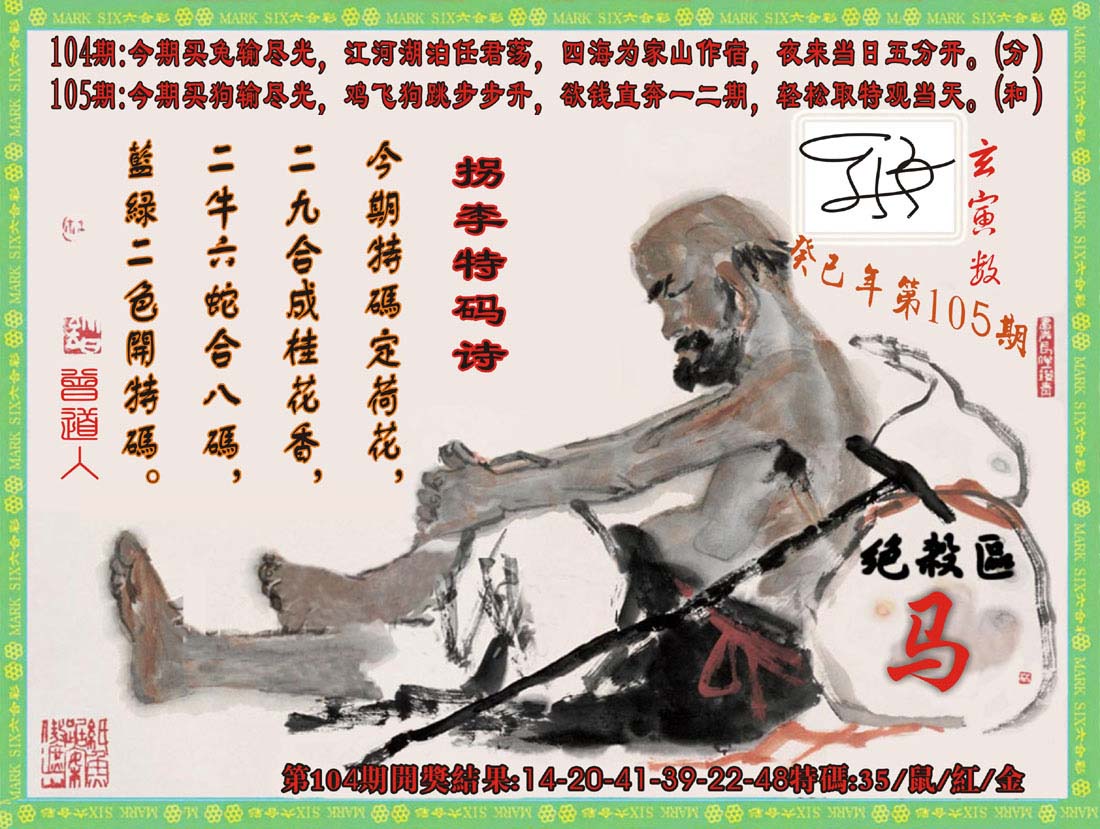 MARK SIX六合彩
104期:今期买兔输尽光，江河湖泊任君荡，四海为家山作宿，夜来当日五分开。(分)
105期:今期买狗输尽光，鸡飞狗跳步步升，欲钱直奔一二期，轻松取特观当天。(和)
玄寅数
癸巳年第105期
拐李特码诗
今期特碼定荷花，
二九合成桂花香，
二牛六蛇合八碼，
藍綠二色開特碼。
曾道人
绝殺區
马
第104期開獎結果:14-20-41-39-22-48特碼:35/鼠/紅/金